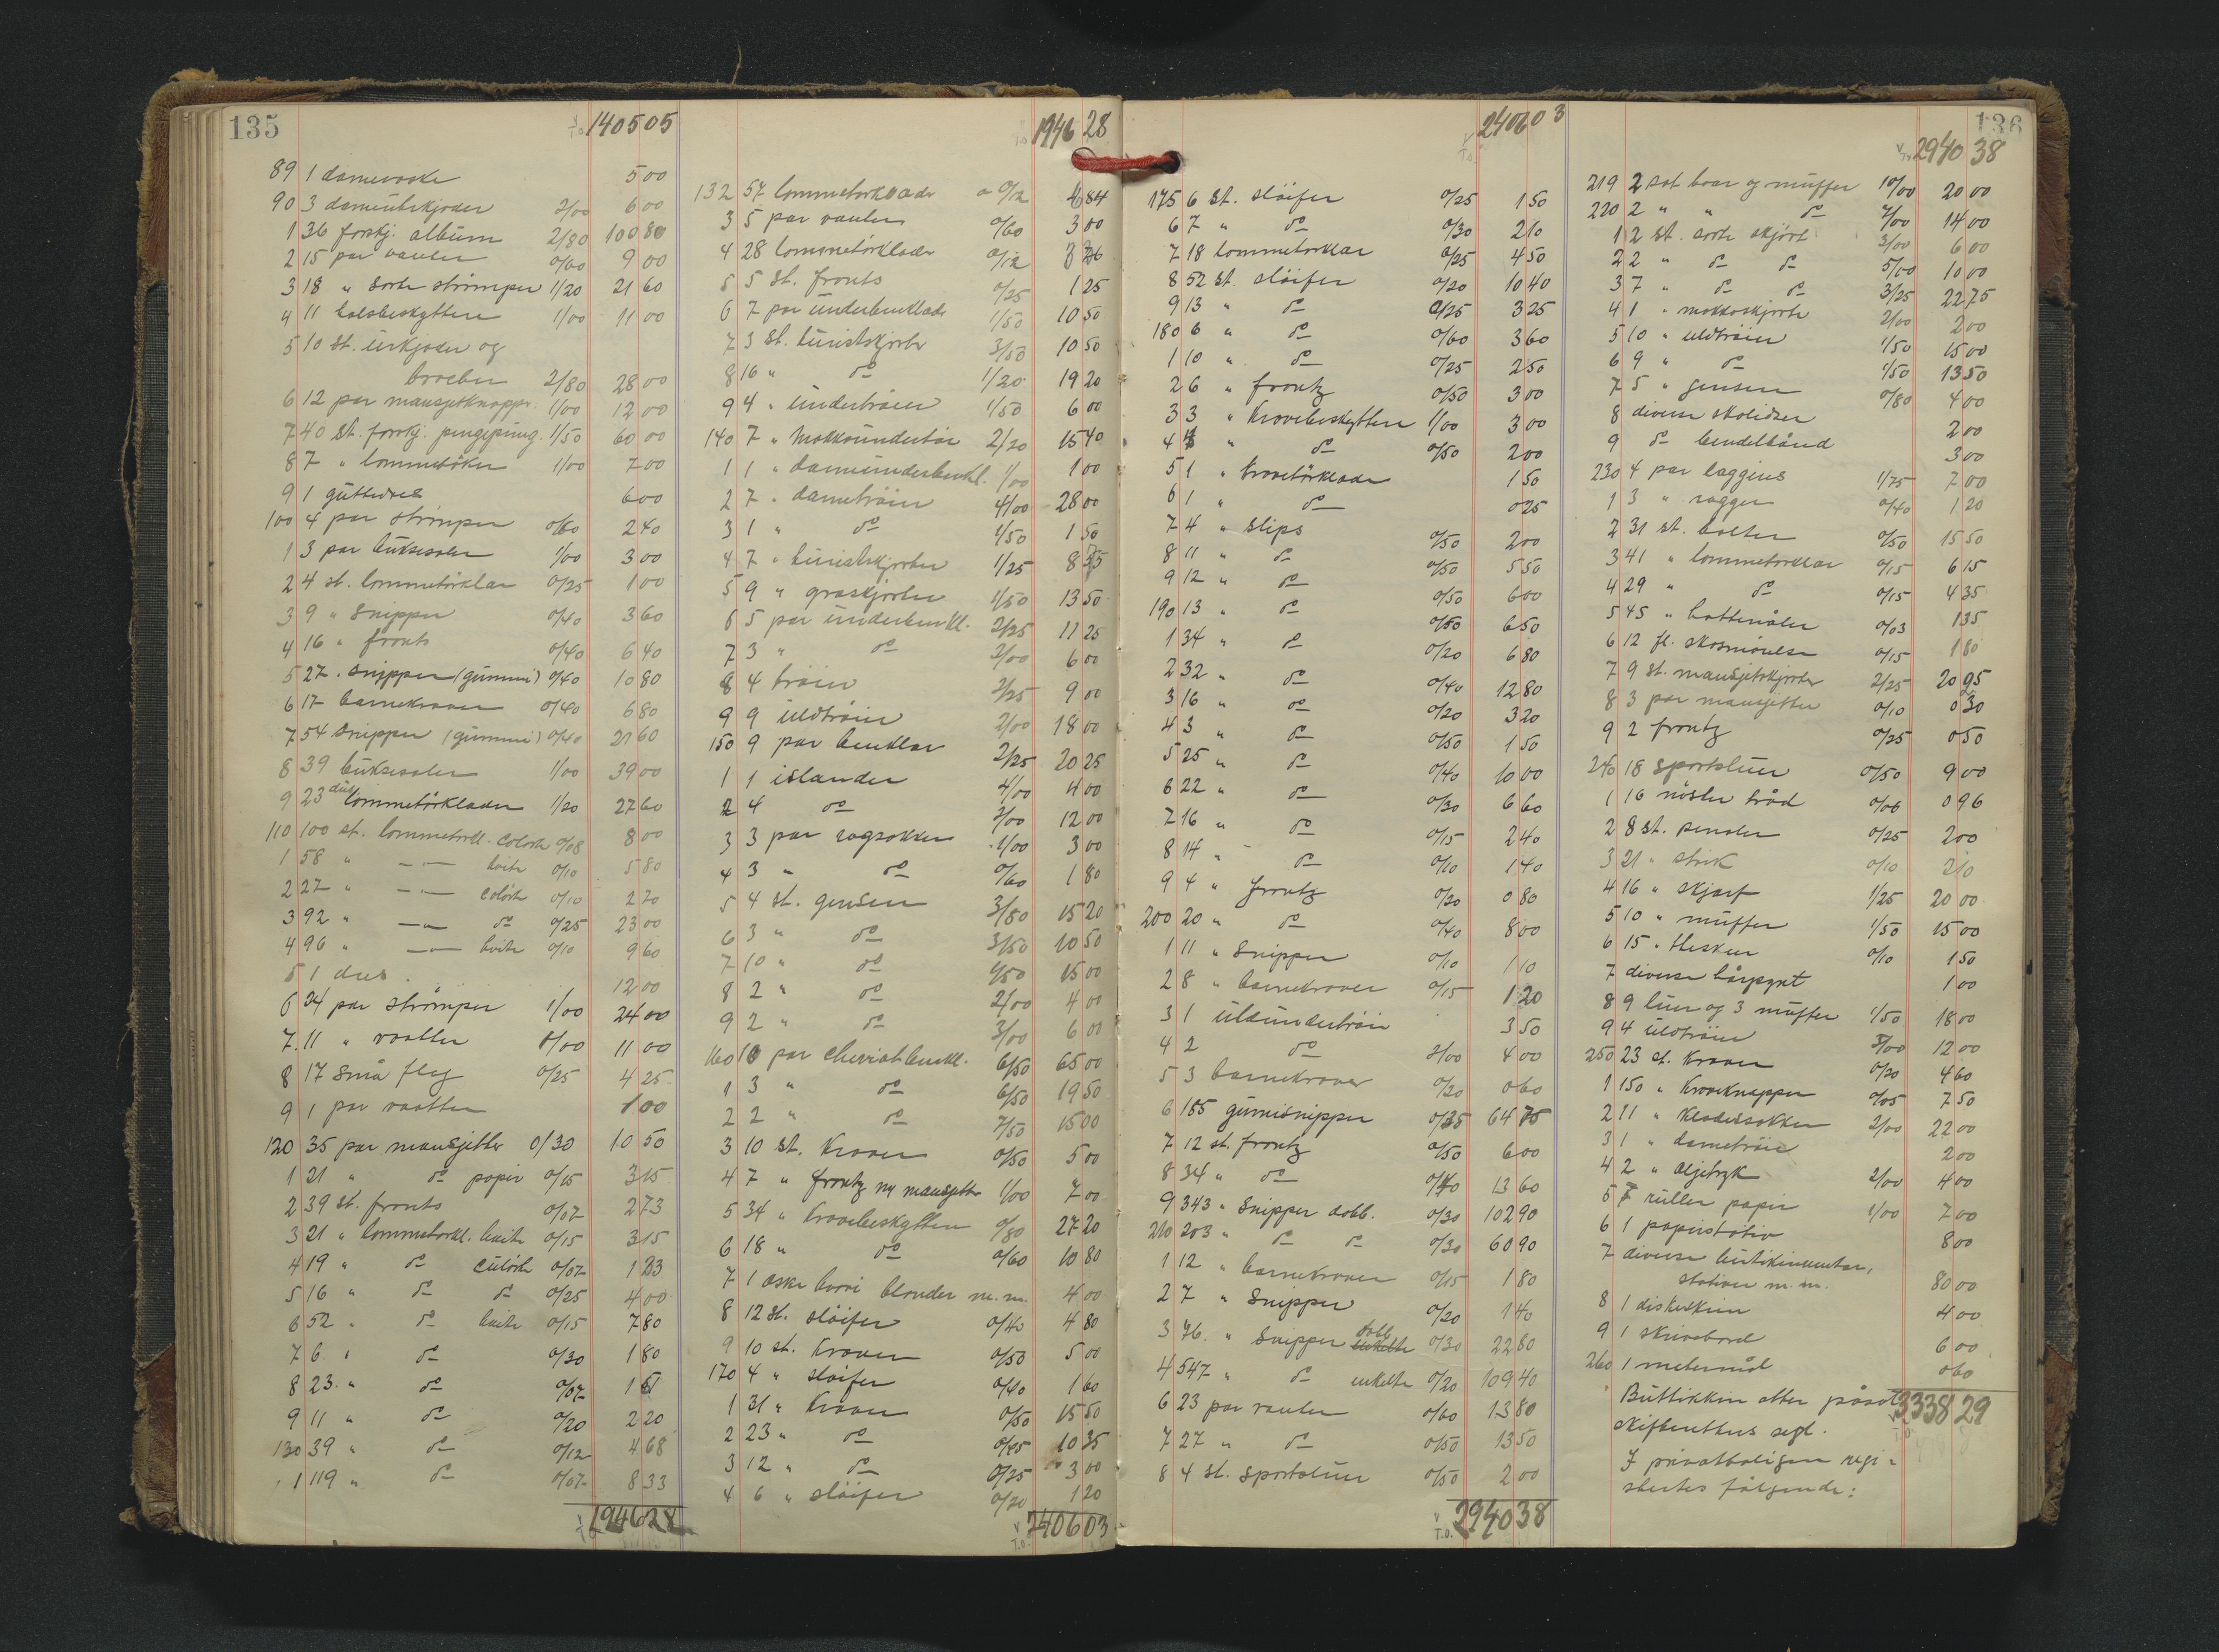 135
1405 05
89 1 damevaske 5 00
90 3 dameurkjeder 2/00 6 00
1 36 forskj. album 2/80 100 80
2 15 par vanter 0/60 9 00
3 18 " sorte strømper 1/20 21 60
4 11 halsbeskyttere 1/00 11 00
5 10 st. urkjeder og
brocher 2/80 28 00
6 12 par mansjetknapper 1/00 12 00
7 40 st. forskj. pengepung. 1/50 60 00
8 7 " lommebøker 1/00 7 00
9 1 guttedres 6 00
100 4 par strømper 0/60 2 40
1 3 par buksesæler 1/00 3 00
2 4 st. lommetørklær 0/25 1 00
3 9 " snipper 0/40 3 60
4 16 " fronts 0/40 6 40
5 27 " snipper (gummi) 0/40 10 80
6 17 barnekraver 0/40 6 80
7 54 snipper (gummi) 0/40 21 60
8 39 buksesæler 1/00 39 00
9 23 dus lommetørklæder 1/20 27 60
110 100 st. lommetørkl. colørte 0/08 8 00
1 58 " — " — hvite 0/10 5 80
2 27 " — " — colørte 0/10 2 70
3 92 " — " — do 0/25 23 00
4 96 " — " — hvite 0/10 9 60
5 1 dus. 12 00
6 24 par strømper 1/00 24 00
7 11 " vaatter 1/00 11 00
8 17 små flag 0/25 4 25
9 1 par vaatter 1 00
120 35 par mansjetter 0/30 10 50
1 21 " do papir 0/15 3 15
2 39 st. fronts 0/07 2 73
3 21 " lommetørkl. hvite 0/15 3 15
4 19 " do culørte 0/07 1 33
5 16 " do do 0/25 4 00
6 52 " do hvite 0/15 7 80
7 6 " do 0/30 1 80
8 23 " do 0/07 1 61
9 11 " do 0/20 2 20
130 39 " do 0/12 4 68
1 119 " do 0/07 8 33
1946 28
1946 28
132 57 lommetørklæder a 0/12 6 84
3 5 par vanter 0/60 3 00
4 28 lommetørklæder 0/12 3 36
5 5 st. fronts 0/25 1 25
6 7 par underbenklæder 1/50 10 50
7 3 st. turistskjorter 3/50 10 50
8 16 " do 1/20 19 20
9 4 " undertrøier 1/50 6 00
140 7 " Makkoundertøi 2/20 15 40
1 1 " dameunderbenkl. 1/00 1 00
2 7 " dametrøier 4/00 28 00
3 1 " do 1/50 1 50
4 7 " turistskjorter 1/25 8 75
5 9 " graskjorter 1/50 13 50
6 5 par underbenkl. 2/25 11 25
7 3 " do 2/00 6 00
8 4 trøier 2/25 9 00
9 9 uldtrøier 2/00 18 00
150 9 par benklær 2/25 20 25
1 1 islander 4/00 4 00
2 4 do 3/00 12 00
3 3 par ragsokker 1/00 3 00
4 3 " do 0/60 1 80
5 4 st. gensere 3/80 15 20
6 3 " do 3/50 10 50
7 10 " do 1/50 15 00
8 2 " do 2/00 4 00
9 2 " do 3/00 6 00
160 10 par cheviotbenkl. 6/50 65 00
1 3 " do 6/50 19 50
2 2 " do 7/50 15 00
3 10 st. Kraver 0/50 5 00
4 7 " frontz og mansjetter 1/00 7 00
5 34 " Kravebeskyttere 0/80 27 20
6 18 " do 0/60 10 80
7 1 æske hvori blonder m. m. 4 00
8 12 st. sløifer 0/40 4 80
9 10 st. Kraver 0/50 5 00
170 4 " sløifer 0/40 1 60
1 31 " Kraver 0/50 15 50
2 23 " do 0/45 10 35
3 12 " do 0/25 3 00
4 6 " sløifer 0/20 1 20
T.O. 2406 03
2406 03
T.O.
175 6 st. sløifer 0/25 1 50
6 7 " do 0/30 2 10
7 18 lommetørklær 0/25 4 50
8 52 st. sløifer 0/20 10 40
9 13 " do 0/25 3 25
180 6 " do 0/60 3 60
1 10 " do 0/25 2 50
2 6 " frontz 0/50 3 00
3 3 " Kravebeskyttere 1/00 3 00
4 4 " do 0/50 2 00
5 1 " Kravetørklæde 1 50
6 1 " do 0 25
7 4 " slips 0/50 2 00
8 11 " do 0/50 5 50
9 12 " do 0/50 6 00
190 13 " do 0/50 6 50
1 34 " do 0/20 6 80
2 32 " do 0/40 12 80
3 16 " do 0/20 3 20
4 3 " do 0/50 1 50
5 25 " do 0/40 10 00
6 22 " do 0/30 6 60
7 16 " do 0/15 2 40
8 14 " do 0/10 1 40
9 4 " frontz 0/20 0 80
200 20 " do 0/40 8 00
1 11 " Snipper 0/10 1 10
2 8 " barnekraver 0/15 1 20
3 1 uldundertrøie 3 50
4 2 do 2/00 4 00
5 3 barnekraver 0/20 0 60
6 185 gumisnipper 0/35 64 75
7 12 st. frontz 0/50 6 00
8 34 " do 0/40 13 60
9 343 " Snipper dobb. 0/30 102 90
210 203 " do do 0/30 60 90
1 12 " barnekraver 0/15 1 80
2 7 " Snipper 0/20 1 40
3 76 " Snipper dobb enkelte 0/30 22 80
4 547 " do enkelte 0/20 109 40
6 23 par vanter 0/60 13 80
7 27 " do 0/50 13 50
8 4 st. sportsluer 0/50 2 00
T.O. 2940 38
136
2940 38
219 2 set boer og muffer 10/00 20 00
220 2 " " do 7/00 14 00
1 2 st. sorte skjørt 3/00 6 00
2 2 " do do 5/00 10 00
3 7 " do do 3/25 22 75
4 1 " makkoskjorte 2/00 2 00
5 10 " uldtrøier 1/50 15 00
6 9 " do 1/50 13 50
7 5 " gensere 0/80 4 00
8 diverse skolidser 2 00
9 do bendelbånd 3 00
230 4 par laggins 1/75 7 00
1 3 " ragger 0/40 1 20
2 31 st. belter 0/50 15 50
3 41 " lommetørklær 0/15 6 15
4 29 " do 0/15 4 35
5 45 " hattenåler 0/03 1 35
6 12 fl. skosmørelse 0/15 1 80
7 9 st. mansjetskjorter 2/25 20 25
8 3 par mansjetter 0/10 0 30
9 2 frontz 0/25 0 50
240 18 sportsluer 0/50 9 00
1 16 nøster tråd 0/06 0 96
2 8 st. pensler 0/25 2 00
3 21 " strik 0/10 2 10
4 16 " skjærf 1/25 20 00
5 10 " muffer 1/50 15 00
6 15 " Hesken 0/10 1 50
7 diverse hårpynt 1 00
8 9 luer og 3 muffer 1/50 18 00
9 4 uldtrøier 3/00 12 00
250 23 st. Kraver 0/20 4 60
1 150 " Kraveknapper 0/05 7 50
2 11 " Klædessokker 2/00 22 00
3 1 " dametrøie 2 00
4 2 " Oljetryk 2/00 4 00
5 7 ruller papir 1/00 7 00
6 1 papirstativ 8 00
7 diverse butikinventar,
stativer m. m. 80 00
8 1 diskeskrin 4 00
9 1 skrivebord 6 00
260 1 metermål 0 60
Buttikken atter påsat 3338 29
skifterettens segl.
I privatboligen regi-
stertes følgende: